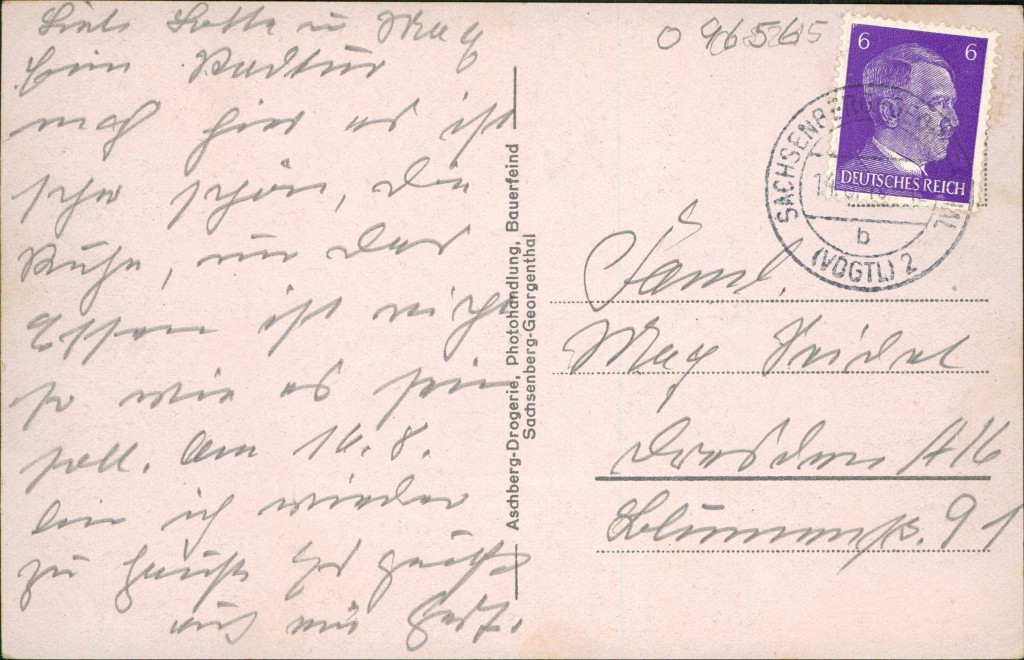 Liebe Lotte u Max
Eine Radtur
nach hier es ist
sehr schön, die
Ruhe, nur das
Essen ist nicht
so wie es sein
soll. Am 16.8.
bin ich wieder
zu Hause Es grüßt
Aschberg-Drogerie, Photohandlung, Bauerfeind
Sachsenberg-Georgenthal
096565
6 6
DEUTSCHES REICH
SACHSENBERG-GEORGENTHAL
b
(VOGTL) 2
Faml.
Max Seidel
Dresden A16
Blumenstr. 91